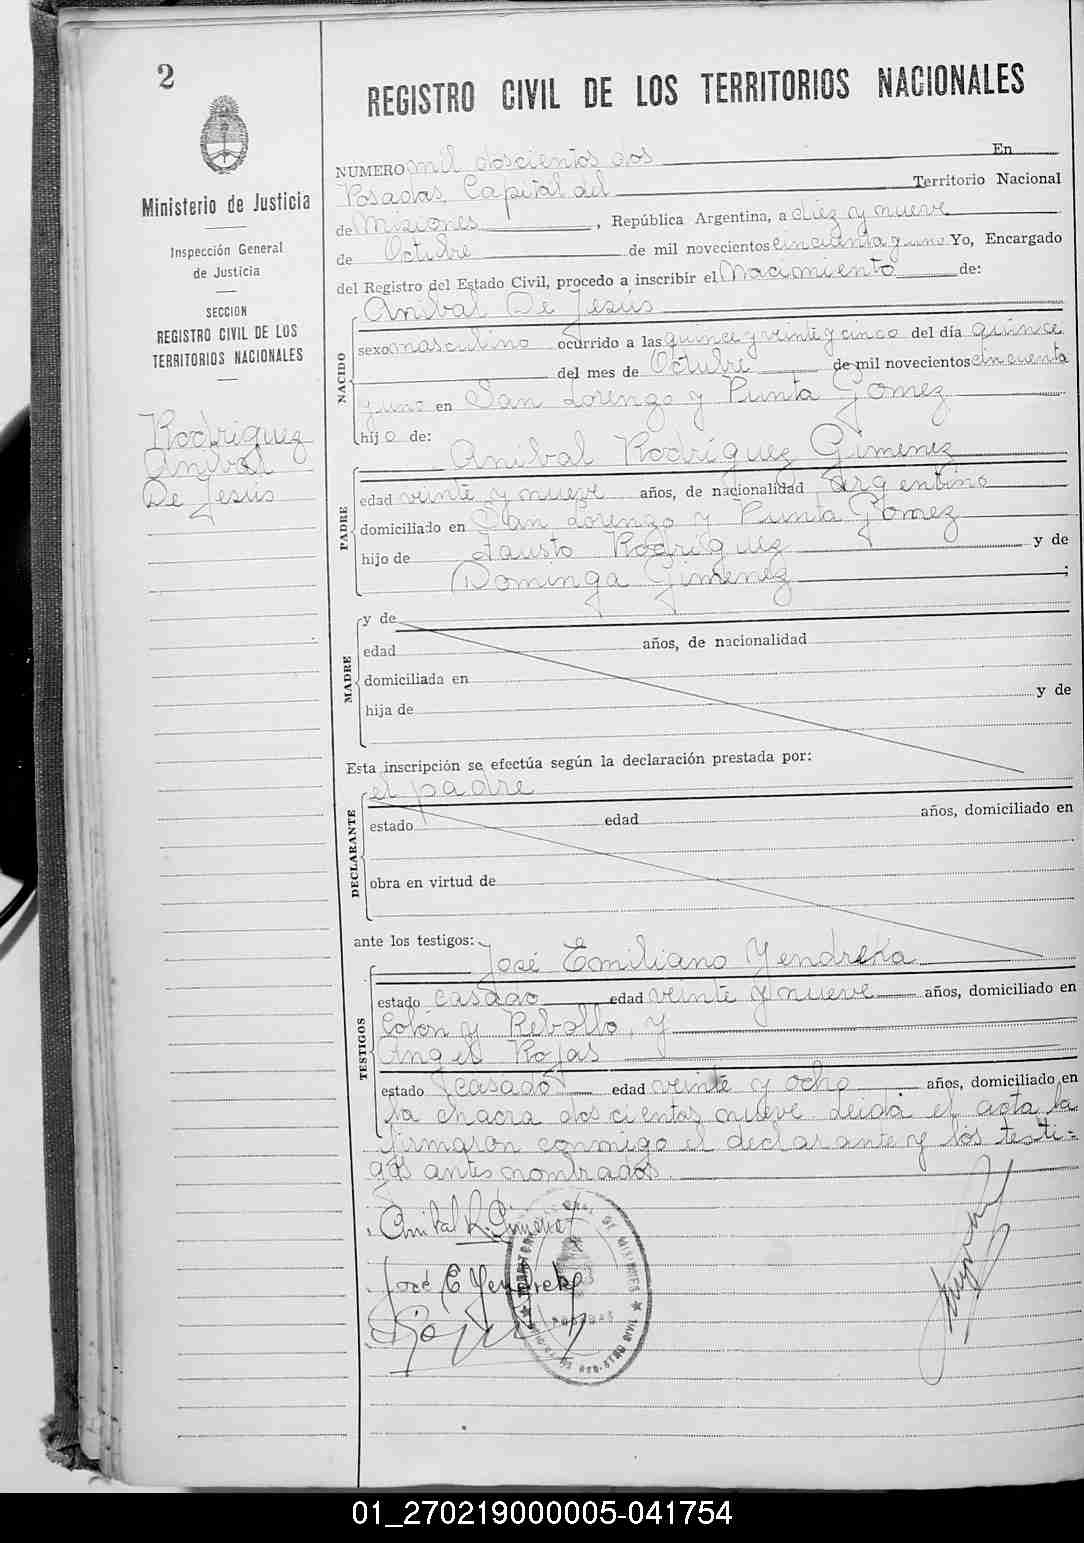 2
REGISTRO CIVIL DE LOS TERRITORIOS NACIONALES
Ministerio de Justicia
Inspección General
de Justicia
SECCION
REGISTRO CIVIL DE LOS
TERRITORIOS NACIONALES
Rodriguez
Anibal
De Jesús
NUMERO mil doscientos dos En
Posadas, Capital del Territorio Nacional
de Misiones, República Argentina, a diez y nueve
de Octubre de mil novecientos cincuenta y uno Yo, Encargado
del Registro del Estado Civil, procedo a inscribir el Nacimiento de:
NACIDO
Anibal De Jesús
sexo masculino ocurrido a las quince y veinte y cinco del día quince
del mes de Octubre de mil novecientos cincuenta
y uno en San Lorenzo y Punta Gomez
hijo de:
PADRE
Anibal Rodriguez Gimenez
edad veinte y nueve años, de nacionalidad argentino
domiciliado en San Lorenzo y Punta Gomez
hijo de Fausto Rodriguez y de
Dominga Gimenez ;
MADRE
y de
edad años, de nacionalidad
domiciliada en
hija de y de
Esta inscripción se efectúa según la declaración prestada por:
DECLARANTE
el padre
estado edad años, domiciliado en
obra en virtud de
ante los testigos:
TESTIGOS
José Emiliano Yendreka
estado casado edad veinte y nueve años, domiciliado en
Colón y Rebollo, y
Angel Rojas
estado casado edad veinte y ocho años, domiciliado en
la chacra doscientos nueve. Leida el acta la
firmaron conmigo el declarante y los testi-
gos antes nombrados.
Anibal R. Gimenez
José E. Yendreka
POSADAS
01_270219000005-041754